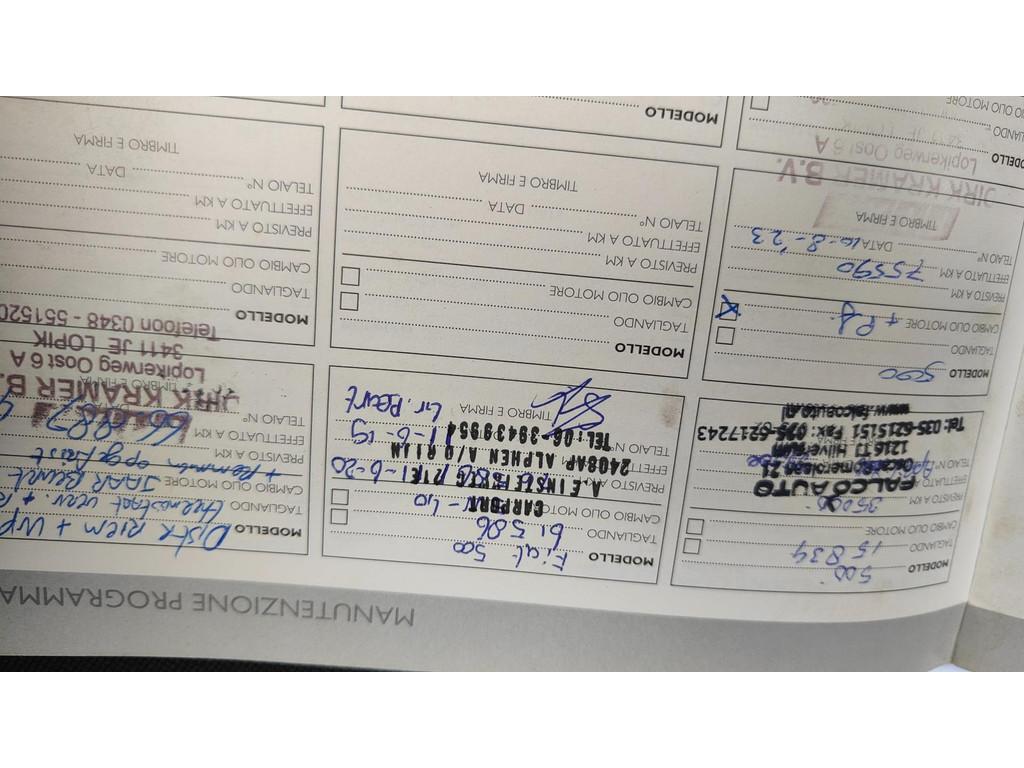 MANUTENZIONE PROGRAMMA
MODELLO 500
TAGLIANDO 15834
CAMBIO OLIO MOTORE
PREVISTO A KM 35000
EFFETTUATO
TELAIO N°
FALCO AUTO
1216 TJ Hilversum
Tel: 035-6215151 Fax: 035-6217243
www.falcoauto.nl
MODELLO Fiat 500
TAGLIANDO 61506
CAMBIO OLIO MOTORE
PREVISTO A KM 11-6-20
EFFETT
TELAIO 11-6-19
TIMBRO E FIRMA Gr. Beurt
CARPORT
A. EINSTEINWEG
2408AP ALPHEN A/D RIJN
TEL: 06-39439954
MODELLO Distr Riem + WP
TAGLIANDO thermostaat verv.
CAMBIO OLIO MOTORE JAAR Beurt
PREVISTO A KM + Remmen opgefrist
EFFETTUATO A KM 66687
TELAIO N°
TIMBRO E FIRMA
DIRK KRAMER B.V.
Lopikerweg Oost 6 A
3411 JE LOPIK
Telefoon 0348 - 551520
MODELLO 500
TAGLIANDO
CAMBIO OLIO MOTORE
PREVISTO A KM
EFFETTUATO A KM 75590
TELAIO N° DATA 10-8-'23
TIMBRO E FIRMA
DIRK KRAMER B.V.
Lopikerweg Oost 6 A
3411 JE
MODELLO
TAGLIANDO
CAMBIO OLIO MOTORE
PREVISTO A KM
EFFETTUATO A KM
TELAIO N° DATA
TIMBRO E FIRMA
MODELLO
TAGLIANDO
CAMBIO OLIO MOTORE
PREVISTO A KM
EFFETTUATO A KM
TELAIO N° DATA
TIMBRO E FIRMA
MODELLO
TAGLIANDO
CAMBIO OLIO MOTORE
MODELLO